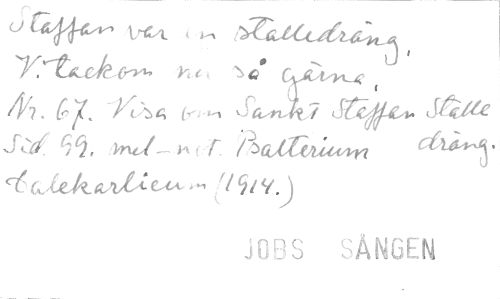 Staffan var en stalledräng,
V. tackom nu så gärna,
Nr. 67. Visa om Sankt Staffan Stalle
Sid. 99. mel-not. Psalterium dräng.
Dalekarlicum (1914.)
JOBS SÅNGEN